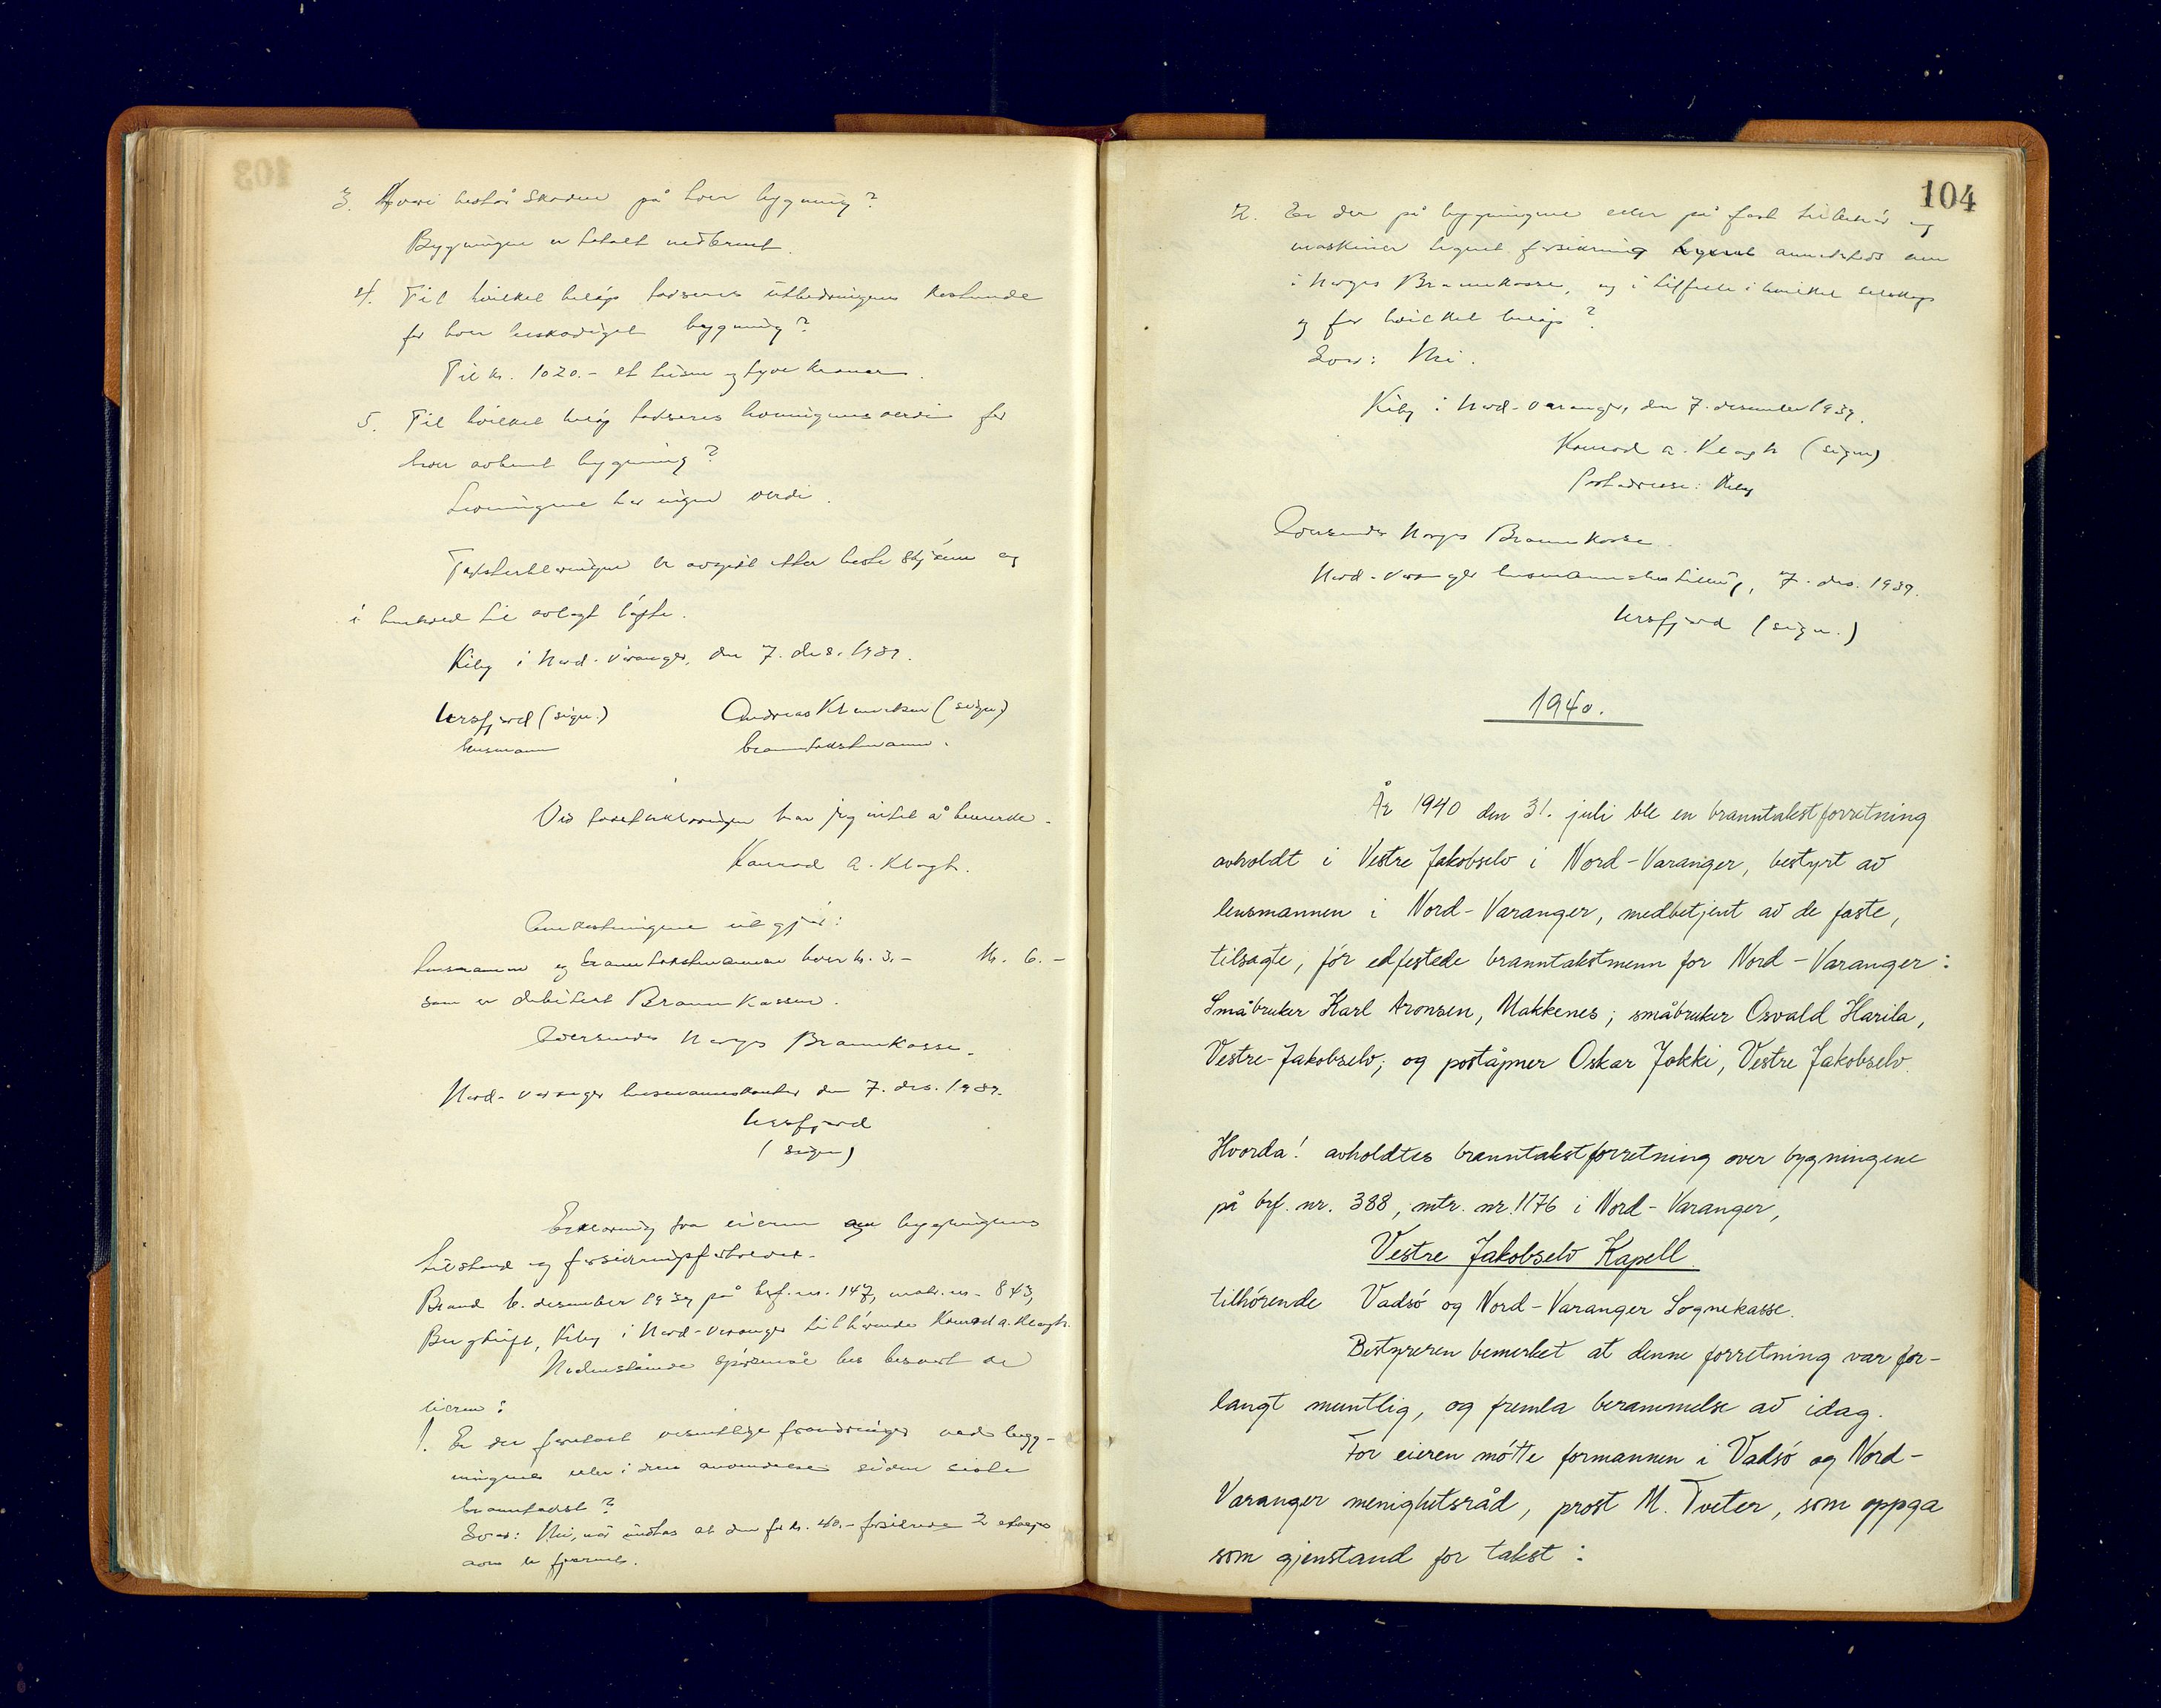 3. Hvori består skaden på hver bygning?
Bygningen er totalt nedbrent.
4. Til hvilket beløp takseres utbedringens kostende
for hver beskadiget bygning?
Til kr. 1020.- et tusen og tyve kroner.
5. Til hvilket beløp takseres levningenes verdi for
hver avbrent bygning?
Levningene har ingen verdi.
Taksterklæringen er avgitt etter beste skjønn og
i henhold til avlagt løfte.
Kiby i Nord-Varanger, den 7. des. 1939.
Ursfjord (sign.) Andreas (sign)
lensmann branntakstmann.
Ved taksterklæringen har jeg intet å bemerke.
Konrad A. Klogh.
Omkostningene utgjør:
Lensmann og branntakstmannen hver kr. 3.- Kr. 6.-
som er debitert Brannkassen.
Oversendes Norges Brannkasse.
Nord-Varanger lensmannskontor den 7. des. 1939.
Ursfjord
(sign)
Erklæring fra eieren om bygningens
tilstand og forsikringsforholdet.
Brand 6. desember 1939 på brf. nr. 147, matr. nr. 843,
Bergtuft, Kiby i Nord-Varanger tilhørende Konrad A. Klogh.
Nedenstående spørsmål bes besvart av
eieren:
1. Er der foretatt vesentlige forandringer ved byg-
ningene eller i dens anvendelse siden siste
branntakst?
Svar: Nei, når untas at den for kr. 40.- forsikrede 2 etasjes
ovn er fjernet.
104
2. Er der på bygningene eller på fast tilbehør og
maskiner tegnet forsikring annetsteds enn
i Norges Brannkasse, og i tilfelle i hvilket selskap
og for hvilket beløp?
Svar: Nei.
Kiby i Nord-Varanger, den 7. desember 1939.
Konrad A. Klogh (sign)
Postadresse: Kiby
Oversendes Norges Brannkasse.
Nord-Varanger lensmannsbestilling, 7. des. 1939.
Ursfjord (sign.)
1940.
År 1940 den 31. juli ble en branntakstforretning
avholdt i Vestre Jakobselv i Nord-Varanger, bestyrt av
lensmannen i Nord-Varanger, medbetjent av de faste,
tilsagte, før edfestede branntakstmenn for Nord-Varanger:
Småbruker Karl Aronsen, Makkenes; småbruker Osvald Harila,
Vestre-Jakobselv; og poståpner Oskar Jokki, Vestre Jakobselv.
Hvorda! avholdtes branntakstforretning over bygningene
på brf. nr. 388, mtr. nr. 1176 i Nord-Varanger,
Vestre Jakobselv Kapell
tilhørende Vadsø og Nord-Varanger Sognekasse.
Bestyreren bemerket at denne forretning var for-
langt muntlig, og fremla berammelse av idag.
For eieren møtte formannen i Vadsø og Nord-
Varanger menighetsråd, prost M. Tveter, som oppga
som gjenstand for takst: